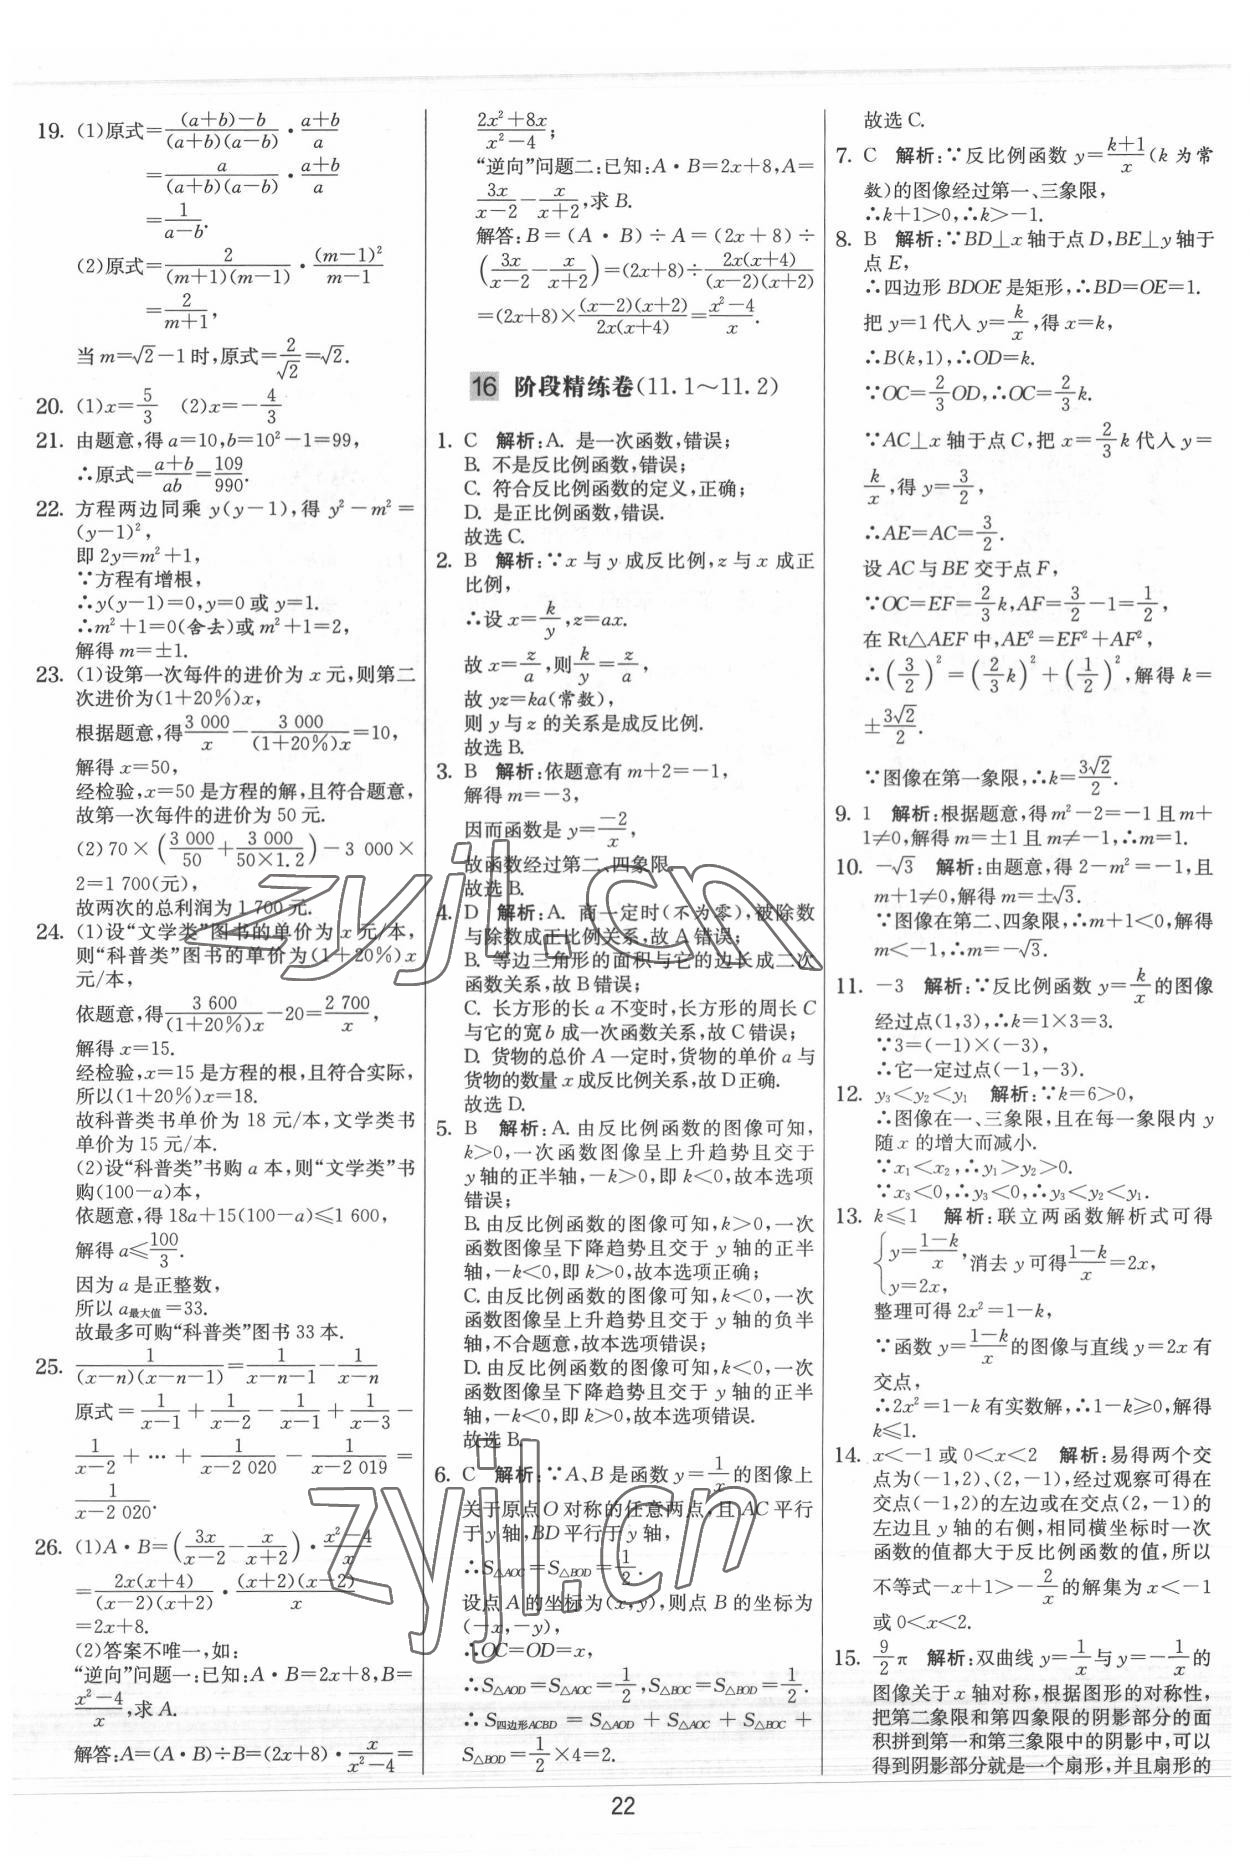 19. (1)原式=\frac{(a+b)-b}{(a+b)(a-b)}·\frac{a+b}{a}
=\frac{a}{(a+b)(a-b)}·\frac{a+b}{a}
=\frac{1}{a-b}.
(2)原式=\frac{2}{(m+1)(m-1)}·\frac{(m-1)²}{m-1}
=\frac{2}{m+1},
当m=√2-1时,原式=\frac{2}{√2}=√2.
20. (1)x=\frac{5}{3} (2)x=-\frac{4}{3}
21. 由题意,得a=10,b=10²-1=99,
∴原式=\frac{a+b}{ab}=\frac{109}{990}.
22. 方程两边同乘y(y-1),得y²-m²=
(y-1)²,
即2y=m²+1,
∵方程有增根,
∴y(y-1)=0,y=0或y=1.
∴m²+1=0(舍去)或m²+1=2,
解得m=±1.
23. (1)设第一次每件的进价为x元,则第二
次进价为(1+20%)x,
根据题意,得\frac{3 000}{x}-\frac{3 000}{(1+20%)x}=10,
解得x=50,
经检验,x=50是方程的解,且符合题意,
故第一次每件的进价为50元.
(2)70×(\frac{3 000}{50}+\frac{3 000}{50×1.2})-3 000×
2=1 700(元),
故两次的总利润为1 700元.
24. (1)设“文学类”图书的单价为x元/本,
则“科普类”图书的单价为(1+20%)x
元/本,
依题意,得\frac{3 600}{(1+20%)x}-20=\frac{2 700}{x},
解得x=15.
经检验,x=15是方程的根,且符合实际,
所以(1+20%)x=18.
故科普类书单价为18元/本,文学类书
单价为15元/本.
(2)设“科普类”书购a本,则“文学类”书
购(100-a)本,
依题意,得18a+15(100-a)≤1 600,
解得a≤\frac{100}{3}.
因为a是正整数,
所以a最大值=33.
故最多可购“科普类”图书33本.
25. \frac{1}{(x-n)(x-n-1)}=\frac{1}{x-n-1}-\frac{1}{x-n}
原式=\frac{1}{x-1}+\frac{1}{x-2}-\frac{1}{x-1}+\frac{1}{x-3}-
\frac{1}{x-2}+…+\frac{1}{x-2 020}-\frac{1}{x-2 019}=
\frac{1}{x-2 020}.
26. (1)A·B=(\frac{3x}{x-2}-\frac{x}{x+2})·\frac{x²-4}{x}
=\frac{2x(x+4)}{(x-2)(x+2)}·\frac{(x+2)(x-2)}{x}
=2x+8.
(2)答案不唯一,如:
“逆向”问题一:已知:A·B=2x+8,B=
\frac{x²-4}{x},求A.
解答:A=(A·B)÷B=(2x+8)·\frac{x}{x²-4}=
\frac{2x²+8x}{x²-4};
“逆向”问题二:已知:A·B=2x+8,A=
\frac{3x}{x-2}-\frac{x}{x+2},求B.
解答:B=(A·B)÷A=(2x+8)÷
(\frac{3x}{x-2}-\frac{x}{x+2})=(2x+8)÷\frac{2x(x+4)}{(x-2)(x+2)}
=(2x+8)×\frac{(x-2)(x+2)}{2x(x+4)}=\frac{x²-4}{x}.
16 阶段精练卷(11.1～11.2)
1. C 解析:A. 是一次函数,错误;
B. 不是反比例函数,错误;
C. 符合反比例函数的定义,正确;
D. 是正比例函数,错误.
故选C.
2. B 解析:∵x与y成反比例,z与x成正
比例,
∴设x=\frac{k}{y},z=ax.
故x=\frac{z}{a},则\frac{k}{y}=\frac{z}{a},
故yz=ka(常数),
则y与z的关系是成反比例.
故选B.
3. B 解析:依题意有m+2=-1,
解得m=-3,
因而函数是y=\frac{-2}{x},
故函数经过第二、四象限.
故选B.
4. D 解析:A. 商一定时(不为零),被除数
与除数成正比例关系,故A错误;
B. 等边三角形的面积与它的边长成二次
函数关系,故B错误;
C. 长方形的长a不变时,长方形的周长C
与它的宽b成一次函数关系,故C错误;
D. 货物的总价A一定时,货物的单价a与
货物的数量x成反比例关系,故D正确.
故选D.
5. B 解析:A.由反比例函数的图像可知,
k>0,一次函数图像呈上升趋势且交于
y轴的正半轴,-k>0,即k<0,故本选项
错误;
B.由反比例函数的图像可知,k>0,一次
函数图像呈下降趋势且交于y轴的正半
轴,-k<0,即k>0,故本选项正确;
C.由反比例函数的图像可知,k<0,一次
函数图像呈上升趋势且交于y轴的负半
轴,不合题意,故本选项错误;
D.由反比例函数的图像可知,k<0,一次
函数图像呈下降趋势且交于y轴的正半
轴,-k<0,即k>0,故本选项错误.
故选B.
6. C 解析:∵A、B是函数y=\frac{1}{x}的图像上
关于原点O对称的任意两点,且AC平行
于y轴,BD平行于y轴,
∴S△AOC=S△BOD=\frac{1}{2}.
设点A的坐标为(x,y),则点B的坐标为
(-x,-y),
∴OC=OD=x,
∴S△AOD=S△AOC=\frac{1}{2},S△BOC=S△BOD=\frac{1}{2}.
∴S四边形ACBD=S△AOD+S△AOC+S△BOC+
S△BOD=\frac{1}{2}×4=2.
故选C.
7. C 解析:∵反比例函数y=\frac{k+1}{x}(k为常
数)的图像经过第一、三象限,
∴k+1>0,∴k>-1.
8. B 解析:∵BD⊥x轴于点D,BE⊥y轴于
点E,
∴四边形BDOE是矩形,∴BD=OE=1.
把y=1代入y=\frac{k}{x},得x=k,
∴B(k,1),∴OD=k.
∵OC=\frac{2}{3}OD,∴OC=\frac{2}{3}k.
∵AC⊥x轴于点C,把x=\frac{2}{3}k代入y=
\frac{k}{x},得y=\frac{3}{2},
∴AE=AC=\frac{3}{2}.
设AC与BE交于点F,
∵OC=EF=\frac{2}{3}k,AF=\frac{3}{2}-1=\frac{1}{2},
在Rt△AEF中,AE²=EF²+AF²,
∴(\frac{3}{2})²=(\frac{2}{3}k)²+(\frac{1}{2})²,解得k=
±\frac{3√2}{2}.
∵图像在第一象限,∴k=\frac{3√2}{2}.
9. 1 解析:根据题意,得m²-2=-1且m+
1≠0,解得m=±1且m≠-1,∴m=1.
10. -√3 解析:由题意,得2-m²=-1,且
m+1≠0,解得m=±√3.
∵图像在第二、四象限,∴m+1<0,解得
m<-1,∴m=-√3.
11. -3 解析:∵反比例函数y=\frac{k}{x}的图像
经过点(1,3),∴k=1×3=3.
∵3=(-1)×(-3),
∴它一定过点(-1,-3).
12. y₃<y₂<y₁ 解析:∵k=6>0,
∴图像在一、三象限,且在每一象限内y
随x的增大而减小.
∵x₁<x₂,∴y₁>y₂>0.
∵x₃<0,∴y₃<0,∴y₃<y₂<y₁.
13. k≤1 解析:联立两函数解析式可得
{y=\frac{1-k}{x}, y=2x, 消去y可得\frac{1-k}{x}=2x,
整理可得2x²=1-k,
∵函数y=\frac{1-k}{x}的图像与直线y=2x有
交点,
∴2x²=1-k有实数解,∴1-k≥0,解得
k≤1.
14. x<-1或0<x<2 解析:易得两个交
点为(-1,2)、(2,-1),经过观察可得在
交点(-1,2)的左边或在交点(2,-1)的
左边且y轴的右侧,相同横坐标时一次
函数的值都大于反比例函数的值,所以
不等式-x+1>-\frac{2}{x}的解集为x<-1
或0<x<2.
15. \frac{9}{2}π 解析:双曲线y=\frac{1}{x}与y=-\frac{1}{x}的
图像关于x轴对称,根据图形的对称性,
把第二象限和第四象限的阴影部分的面
积拼到第一和第三象限中的阴影中,可以
得到阴影部分就是一个扇形,并且扇形的
22
zyjl.cn
zyjl.cn